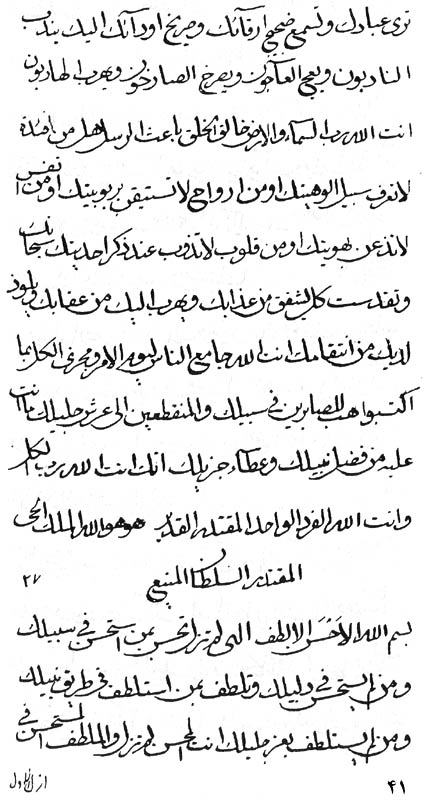 ترى عبادك وتسمع ضجيج ارقائك وصريخ اودائك اليك يندب
النادبون ويعج العآجون ويصرخ الصارخون ويهرب الهاربون
انت الله رب السمآء والارض خالق الخلق باعث الرسل هل من افئدة
لا تعرف سبيل الوهيتك او من ارواح لا تستيقن بربوبيتك او من نفس
لا تذعن بهويتك او من قلوب لا تذوب عند ذكر احديتك سبحانك
وتقدست كل يشفق من عذابك ويهرب اليك من عقابك ويلوذ
لديك من انتقامك انت الله جامع الناس ليوم الامر ومجزى الكل بما
اكتسبوا هب للصابرين في سبيلك والمنقطعين الى عرش جليلك ما انت
عليه من فضل نبيلك وعطاء جزيلك انك انت الله رب الكل
وانت الله الفرد الواحد المقتدر القدير هو هو الله الملك الحى
المقتدر السلطان المنيع
٢٧
بسم الله الاحسن الالطف الهى لم تزل تحسن بمن استحسن في سبيلك
ومن لم يستحسن في دليلك وتلطف بمن استلطف في طريق نبيلك
ومن لم يستلطف بعز جليلك انت المحسن لم تزل والملطف المستحسن في
٤١